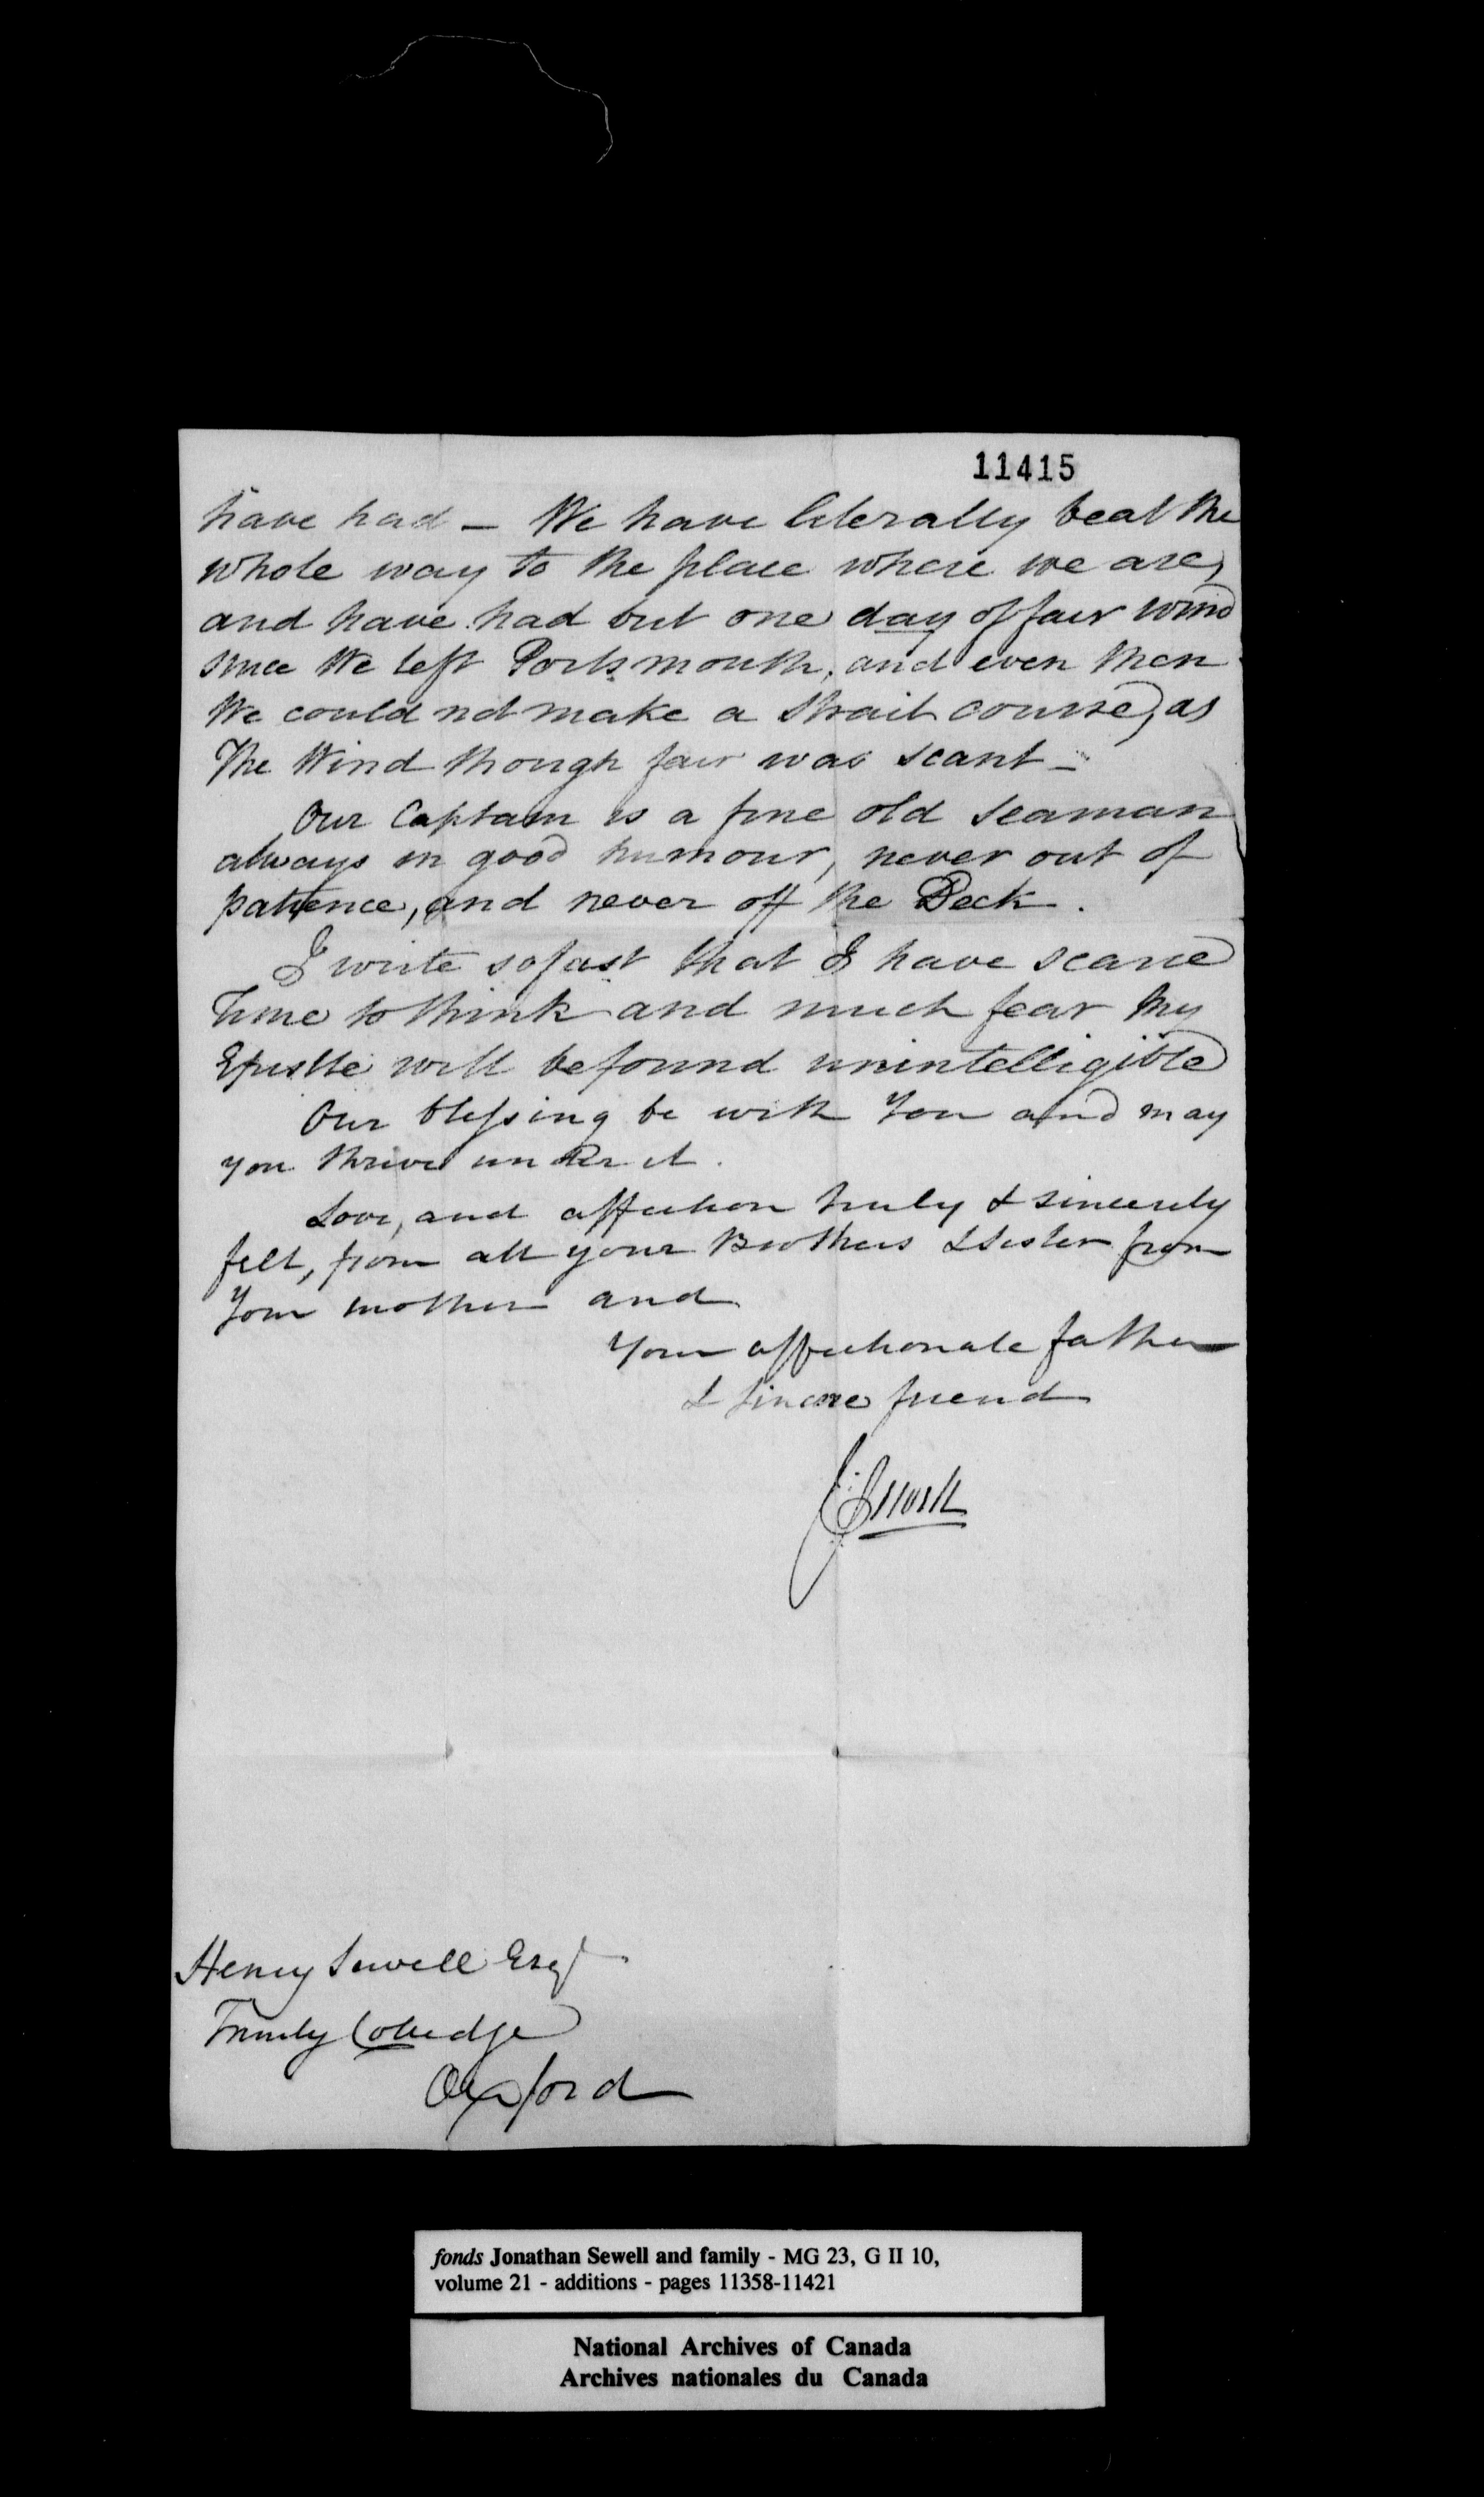 11415
have had - We have literally beat the
whole way to the place where we are,
and have had but one day of fair wind
since We left Portsmouth, and even then
We could not make a strait course, as
The Wind though fair was scant -
Our Captain is a fine old seaman
always in good humour, never out of
patience, and never off the Deck.
I write so fast that I have scarce
Time to think and much fear my
Epistle will be found unintelligible
Our blessing be with You and may
you thrive under it.
Love, and affection truly & sincerely
felt, from all your Brothers & Sister from
Your mother and
Your affectionate father
& sincere friend
Henry Sewell Esqr
Trinity Colledge
Oxford
fonds Jonathan Sewell and family - MG 23, G II 10,
volume 21 - additions - pages 11358-11421
National Archives of Canada
Archives nationales du Canada